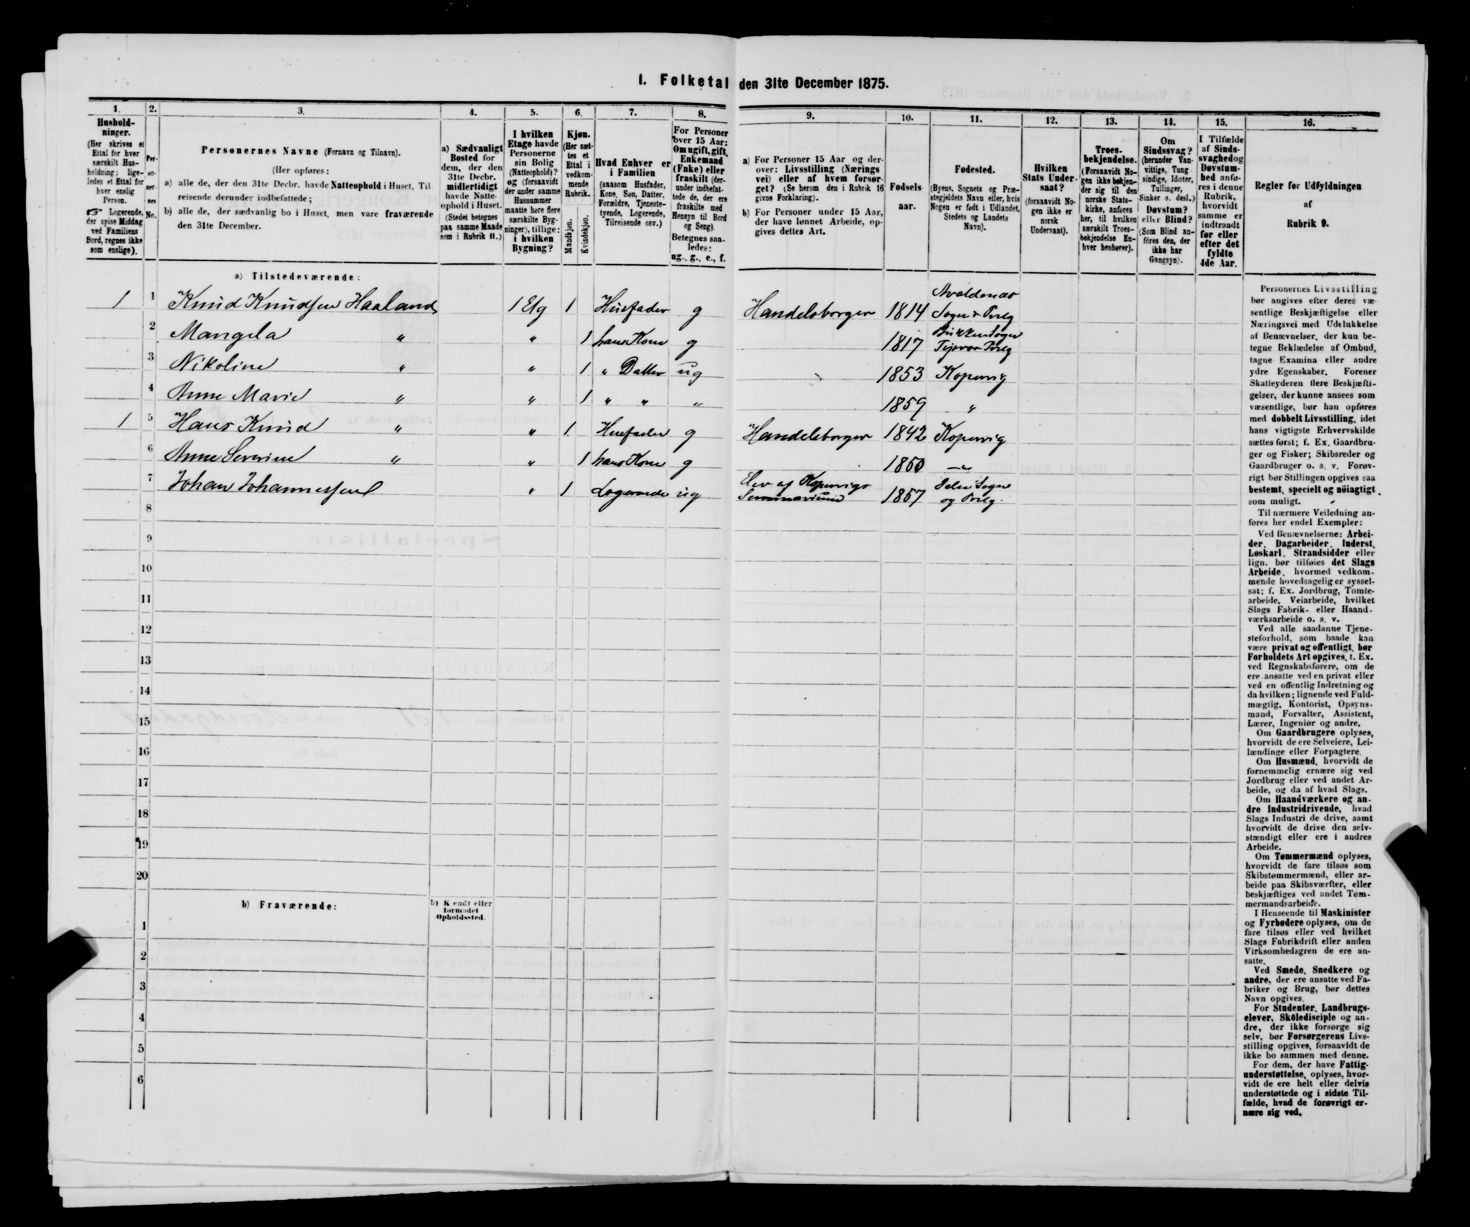 1. Folketal den 31te December 1875.
1.
2.
3.
4.
5.
6.
7.
8.
9.
10.
11.
12.
13.
14.
15.
16.
Hushold-
ninger.
(Her skrives et
Ettal for hver
særskilt Hus-
holdning; lige-
ledes et Ettal for
hver enslig
Person.
☞ Logerende,
der spise Middag
ved Familiens
Bord, regnes ikke
som enslige).
Per-
so-
ner-
nes
No.
Personernes Navne (Fornavn og Tilnavn).
(Her opføres:
a) alle de, der den 31te Decbr. havde Natteophold i Huset, Til-
reisende derunder indbefattede;
b) alle de, der sædvanlig bo i Huset, men vare fraværende
den 31te December.
a) Sædvanligt
Bosted for
dem, der den
31te Decbr.
midlertidigt
havde Natte-
ophold i Huset.
(Stedet betegnes
paa samme Maade
som i Rubrik 11.)
I hvilken
Etage havde
Personerne
sin Bolig
(Natteophold)?
og (forsaavidt
der under samme
Husnummer
maatte høre flere
særskilte Byg-
ninger), tillige:
i hvilken
Bygning?
Kjøn.
(Her sæt-
tes et
Ettal i
vedkom-
mende
Rubrik.
Mandkjøn.
Kvindekjøn.
Hvad Enhver er
i Familien
(saasom Husfader,
Kone, Søn, Datter,
Forældre, Tjeneste-
tyende, Logerende,
Tilreisende osv.)
For Personer
over 15 Aar:
Om ugift, gift,
Enkemand
(Enke) eller
fraskilt (der-
under indbefat-
tede de, der ere
fraskilte med
Hensyn til Bord
og Seng).
Betegnes saa-
ledes:
ug., g., e., f.
a) For Personer 15 Aar og der-
over: Livsstilling (Nærings
vei) eller af hvem forsør-
get? (Se herom den i Rubrik 16
givne Forklaring).
b) For Personer under 15 Aar,
der have lønnet Arbeide, op-
gives dettes Art.
Fødsels
aar.
Fødested.
(Byens, Sognets og Præ-
stegjeldets Navn eller, hvis
Nogen er født i Udlandet,
Stedets og Landets
Navn).
Hvilken
Stats Under-
saat?
(forsaavidt No-
gen ikke er
norsk
Undersaat).
Troes-
bekjendelse.
(Forsaavidt No-
gen ikke bekjen-
der sig til den
norske Stats-
kirke, anføres
her, til hvilken
særskilt Troes-
bekjendelse En-
hver henhører).
Om
Sindssvag?
(herunder Van-
vittige, Tung
sindige, Idioter,
Tullinger,
Sinker o. desl.)
Døvstum?
eller Blind?
(Som Blind an-
føres den, der
ikke har
Gangsyn).
I Tilfælde
af Sinds-
svaghed og
Døvstum-
hed anfø-
res i denne
Rubrik,
hvorvidt
samme er
indtraadt
før eller
efter det
fyldte
4de Aar.
Regler for Udfyldningen
af
Rubrik 9.
a) Tilstedeværende:
1 1 Knud Knudsen Haaland 1 Etg 1 Husfader g Handelsborger 1814 Avaldsnæs Sogn & Prslg
2 Mangela " " 1 hans Kone g 1817 Sogn Prslg
3 Nikoline " " 1 " Datter ug 1853 Kopervig
4 Anne Marie " " 1 " " " 1859 "
1 5 Hans Knud " " 1 Husfader g Handelsborger 1842 Kopervig
6 Anne Severine " " 1 hans Kone g 1850
7 Johan Johannessen " 1 Logerende ug Elev af Kopervigs Seminarium 1857 Sogn og Prslg.
8
9
10
11
12
13
14
15
16
17
18
19
20
b) Fraværende:
b) Kjendt eller
formodet
Opholdssted.
1
2
3
4
5
6
Personernes Livsstilling
bør angives efter deres væ-
sentlige Beskjæftigelse eller
Næringsvei med Udelukkelse
af Benævnelser, der kun be-
tegne Beklædelse af Ombud,
tagne Examina eller andre
ydre Egenskaber. Forener
Skatteyderen flere Beskjæfti-
gelser, der kunne ansees som
væsentlige, bør han opføres
med dobbelt Livsstilling, idet
hans vigtigste Erhvervskilde
sættes først; f. Ex. Gaardbru-
ger og Fisker; Skibsreder og
Gaardbruger o. s. v. Forøv-
rigt bør Stillingen opgives saa
bestemt, specielt og nøiagtigt
som muligt.
Til nærmere Veiledning an-
føres her endel Exempler:
Ved Benævnelserne: Arbei-
der, Dagarbeider, Inderst,
Løskarl, Strandsidder eller
lign. bør tilføies det Slags
Arbeide, hvormed vedkom-
mende hovedsagelig er syssel-
sat; f. Ex. Jordbrug, Tomte-
arbeide, Veiarbeide, hvilket
Slags Fabrik- eller Haand-
værksarbeide o. s. v.
Ved alle saadanne Tjene-
steforhold, som baade kan
være privat og offentligt, bør
Forholdets Art opgives, t. Ex.
ved Regnskabsførere, om de
ere ansatte ved en privat eller
ved en offentlig Indretning og
da hvilken; lignende ved Fuld-
mægtig, Kontorist, Opsyns-
mand, Forvalter, Assistent,
Lærer, Ingeniør og andre.
Om Gaardbrugere oplyses,
hvorvidt de ere Selveiere, Lei-
lændinge eller Forpagtere.
Om Husmænd, hvorvidt de
fornemmelig ernære sig ved
Jordbrug eller ved andet Ar-
beide, og da af hvad Slags.
Om Haandværkere og an-
dre Industridrivende, hvad
Slags Industri de drive, samt
hvorvidt de drive den selv-
stændigt eller ere i andres
Arbeide.
Om Tømmermænd oplyses,
hvorvidt de fare tilsøs som
Skibstømmermænd, eller ar-
beide paa Skibsværfter, eller
beskjæftiges ved andet Tøm-
mermandsarbeide.
I Henseende til Maskinister
og Fyrbødere oplyses, om de
fare tilsøs eller ved hvilket
Slags Fabrikdrift eller anden
Virksomhedsgren de ere an-
satte.
Ved Smede, Snedkere og
andre, der ere ansatte ved Fa-
briker og Brug, bør dettes
Navn opgives.
For Studenter, Landbrugs-
elever, Skoledisciple og an-
dre, der ikke forsørge sig
selv, bør Forsørgerens Livs-
stilling opgives, forsaavidt de
ikke bo sammen med denne.
For dem, der have Fattig-
understøttelse, oplyses, hvor-
vidt de ere helt eller delvis
understøttede og i sidste Til-
fælde, hvad de forøvrigt er-
nære sig ved.